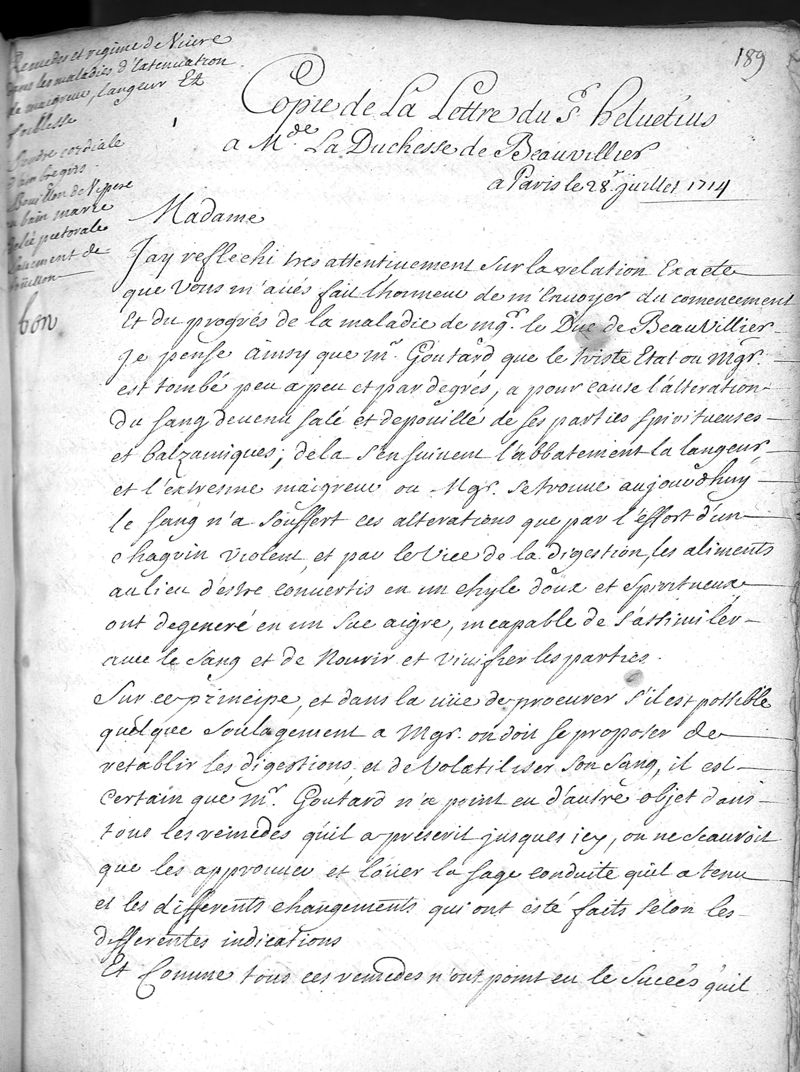 189
Remedes et regime de Vivre
dans les maladies d'latenuation
de maigreur, langeur Et
foiblesse
poudre cordiale
d'ambregris
Bouillon de Vipere
au bain marie
Gelée pectorale
Lavement de
boüillon
bon
Copie de La Lettre du Sr. helvetius
a Mde. La Duchesse de Beauvillier
a Paris le 28e. juillet 1714
Madame
Jay reflechi tres attentivement sur la relation Exacte
que Vous m'avés fait l'honneur de m'Envoyer du comencement
Et du progrés de la maladie de mgr. le Duc de Beauvillier
je pense ainsy que mr. Goutard que le triste Etat ou Mgr.
est tombé peu a peu et par degrés, a pour cause l'alteration
du sang devenu salé et depouillé de ses parties spiritueuses
et balzamiques; de la s'ensuivent l'abbatement la langeur
et l'extresme maigreur ou Mgr. se trouve aujourdhuy
le sang n'a souffert ces alterations que par l'éffort d'un
chagrin violent, et par le Vice de la digestion, les aliments
au lieu d'estre convertis en un chyle doux et spiritueux
ont degeneré en un suc aigre, incapable de s'attimilér
avec le sang et de Nourir et vivifier les parties.
Sur ce principe, et dans la vüe de procurer s'il est possible
quelque soulagement a Mgr. on doit se proposer de
retablir les digestions et de Volatiliser son sang, il est
certain que mr. Goutard n'a point eu d'autre objet dans
tous les remedes qu'il a prescrit jusques icy, on ne sçauroit
que les approuver et loüer la sage conduite qu'il a tenu
et les differents changements qui ont esté faits selon les
differentes indications
Et Comme tous ces remedes n'ont point eu le succés qu'il